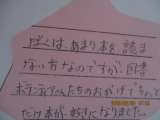 ぼくは、あまり本を読ま
ない方なのですが、図書
ボランティアさんたちのおかげでちょっと
だけ本が好きになりました。